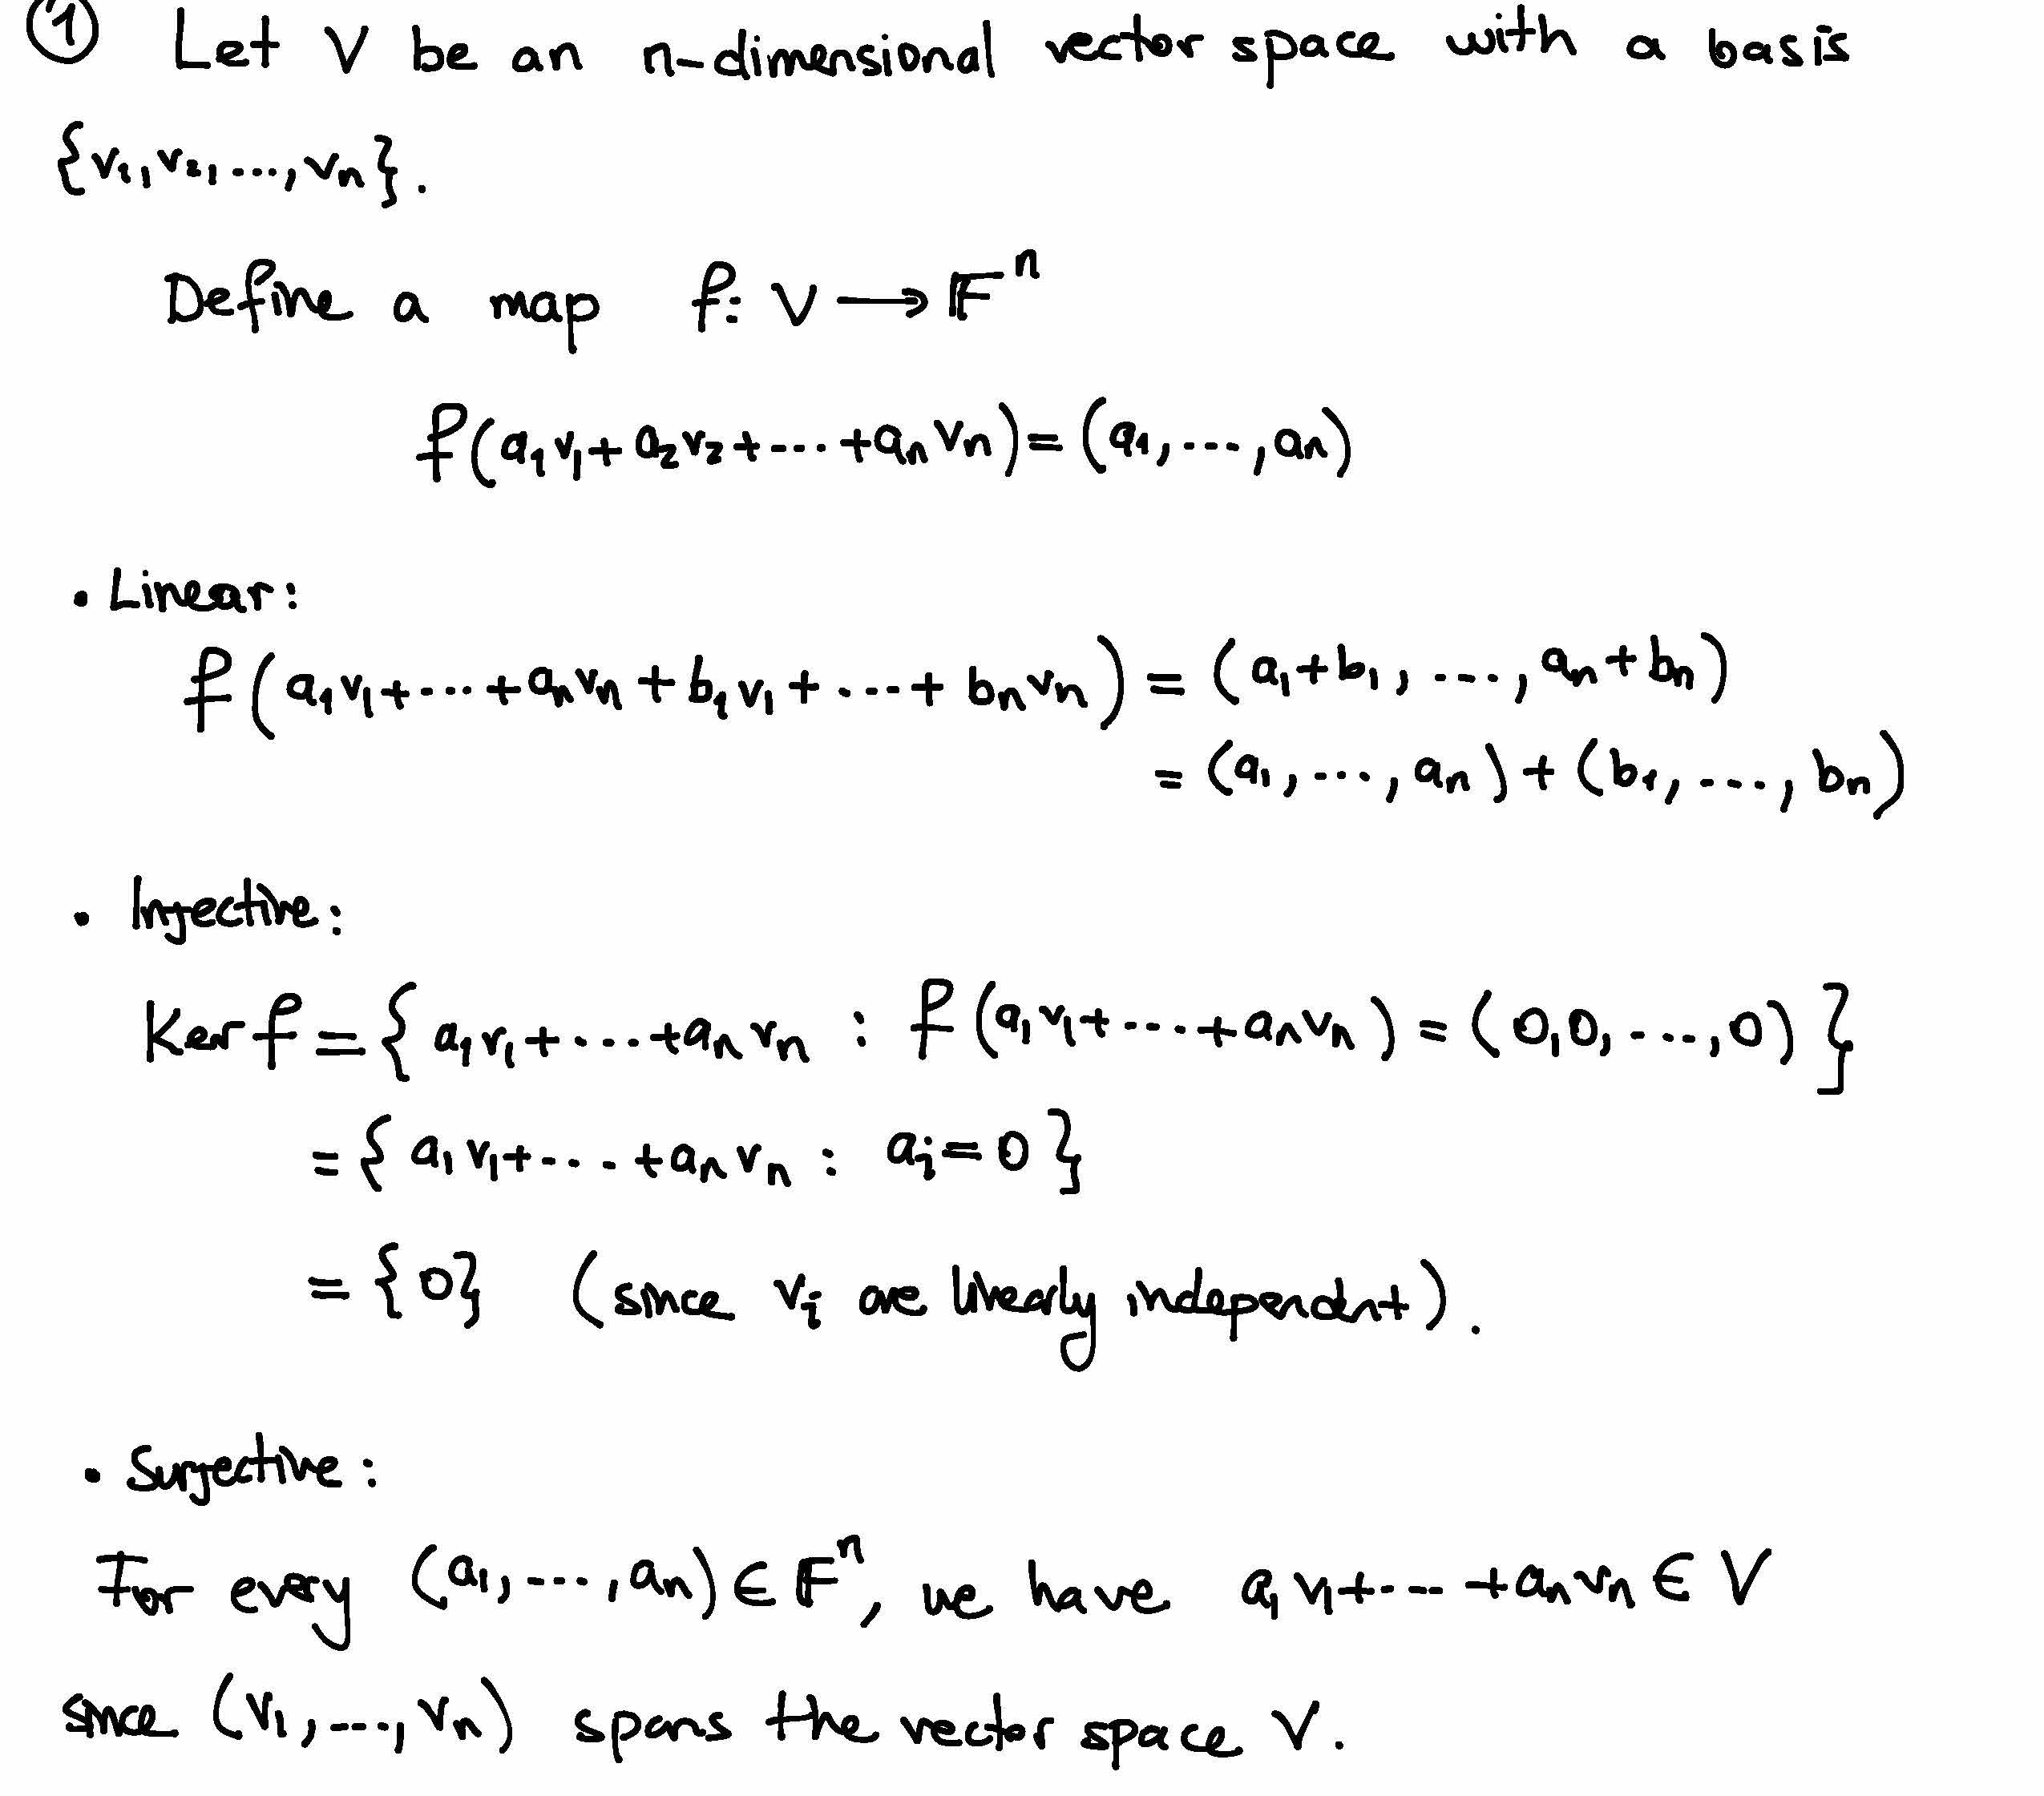 ① Let V be an n-dimensional vector space with a basis
{v₁, v₂, ..., vₙ}.
Define a map f: V → 𝔽ⁿ
f(a₁v₁ + a₂v₂ + ... + aₙvₙ) = (a₁, ..., aₙ)
• Linear:
f(a₁v₁ + ... + aₙvₙ + b₁v₁ + ... + bₙvₙ) = (a₁+b₁, ..., aₙ+bₙ)
= (a₁, ..., aₙ) + (b₁, ..., bₙ)
• Injective:
Ker f = {a₁v₁ + ... + aₙvₙ : f(a₁v₁ + ... + aₙvₙ) = (0,0, ...,0)}
= {a₁v₁ + ... + aₙvₙ : aᵢ = 0}
= {0} (since vᵢ are linearly independent).
• Surjective:
For every (a₁, ..., aₙ) ∈ 𝔽ⁿ, we have a₁v₁ + ... + aₙvₙ ∈ V
since (v₁, ..., vₙ) spans the vector space V.